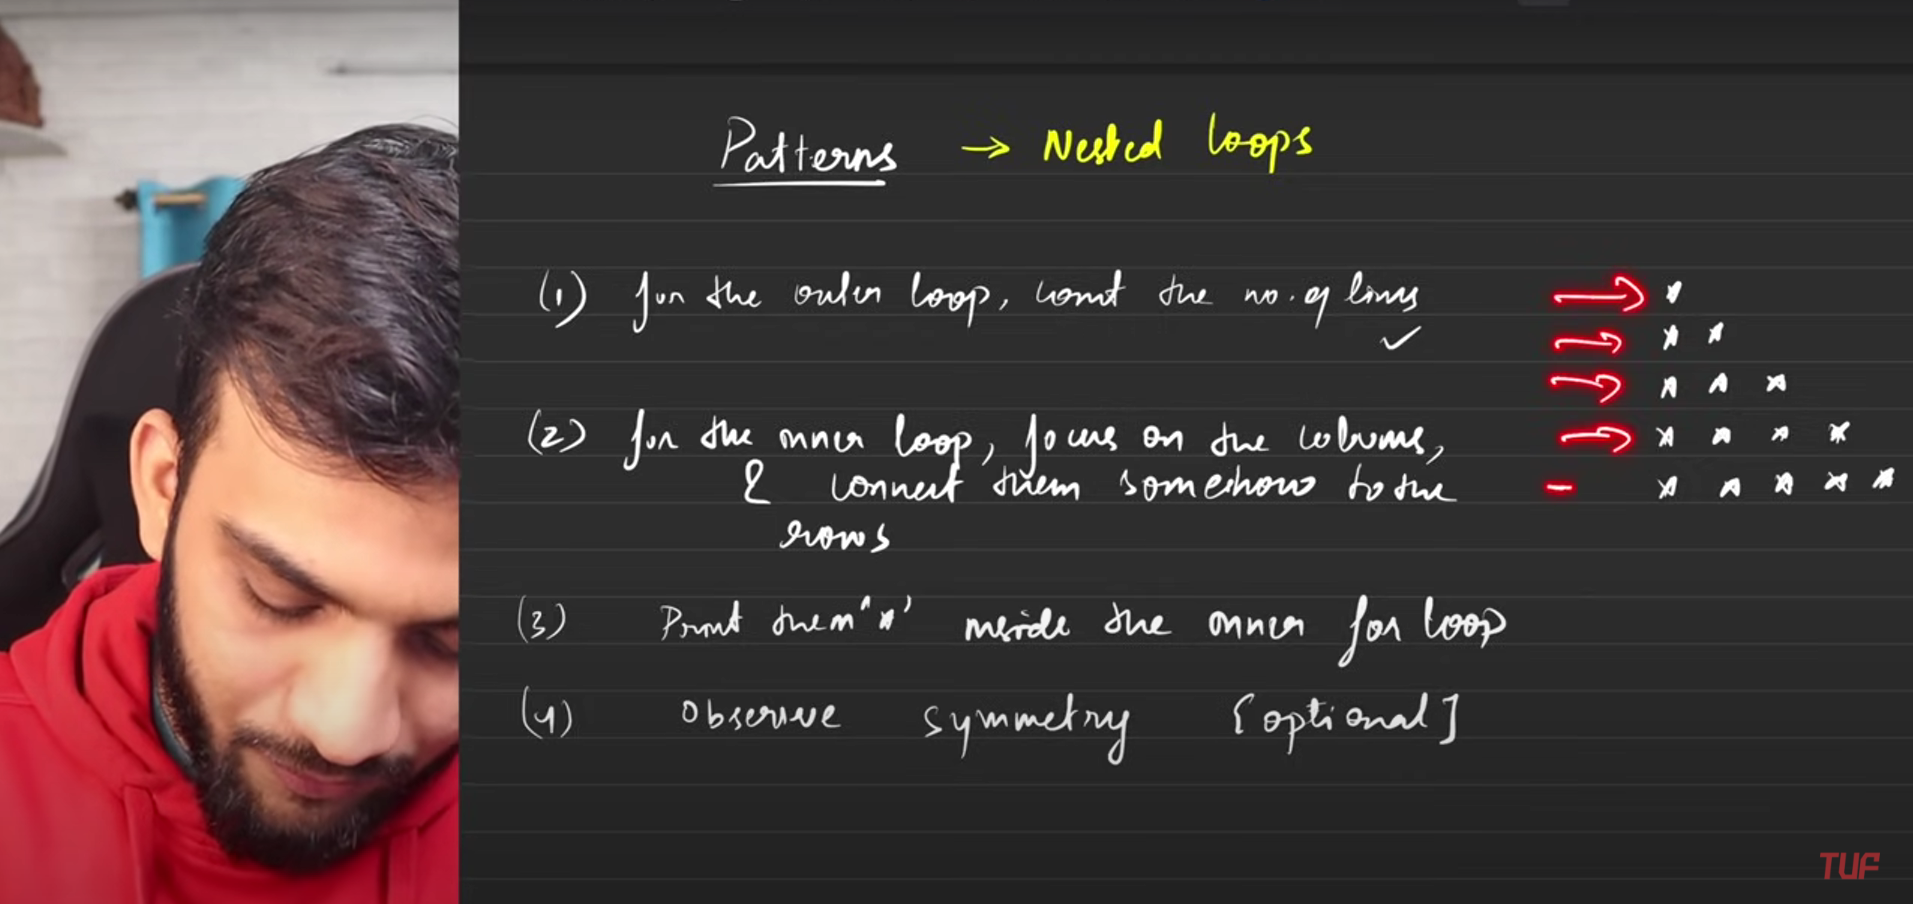 Patterns → Nested loops
(1) for the outer loop, count the no. of lines
(2) for the inner loop, focus on the columns,
& connect them somehow to the
rows
(3) Print them '*' inside the inner for loop
(4) Observe symmetry [optional]
*
* *
* * *
* * * *
* * * * *
TUF